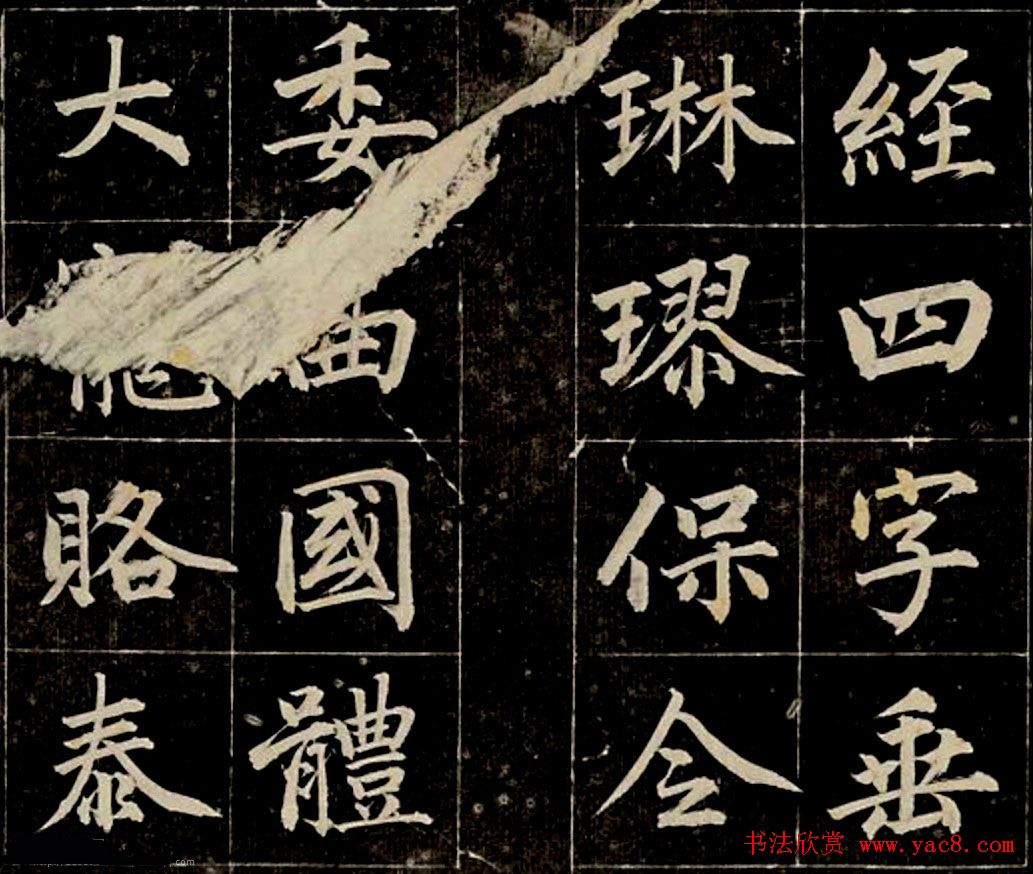 経四字垂
琳璆保令
委曲國體
大賂泰
书法欣赏 www.yac8.com